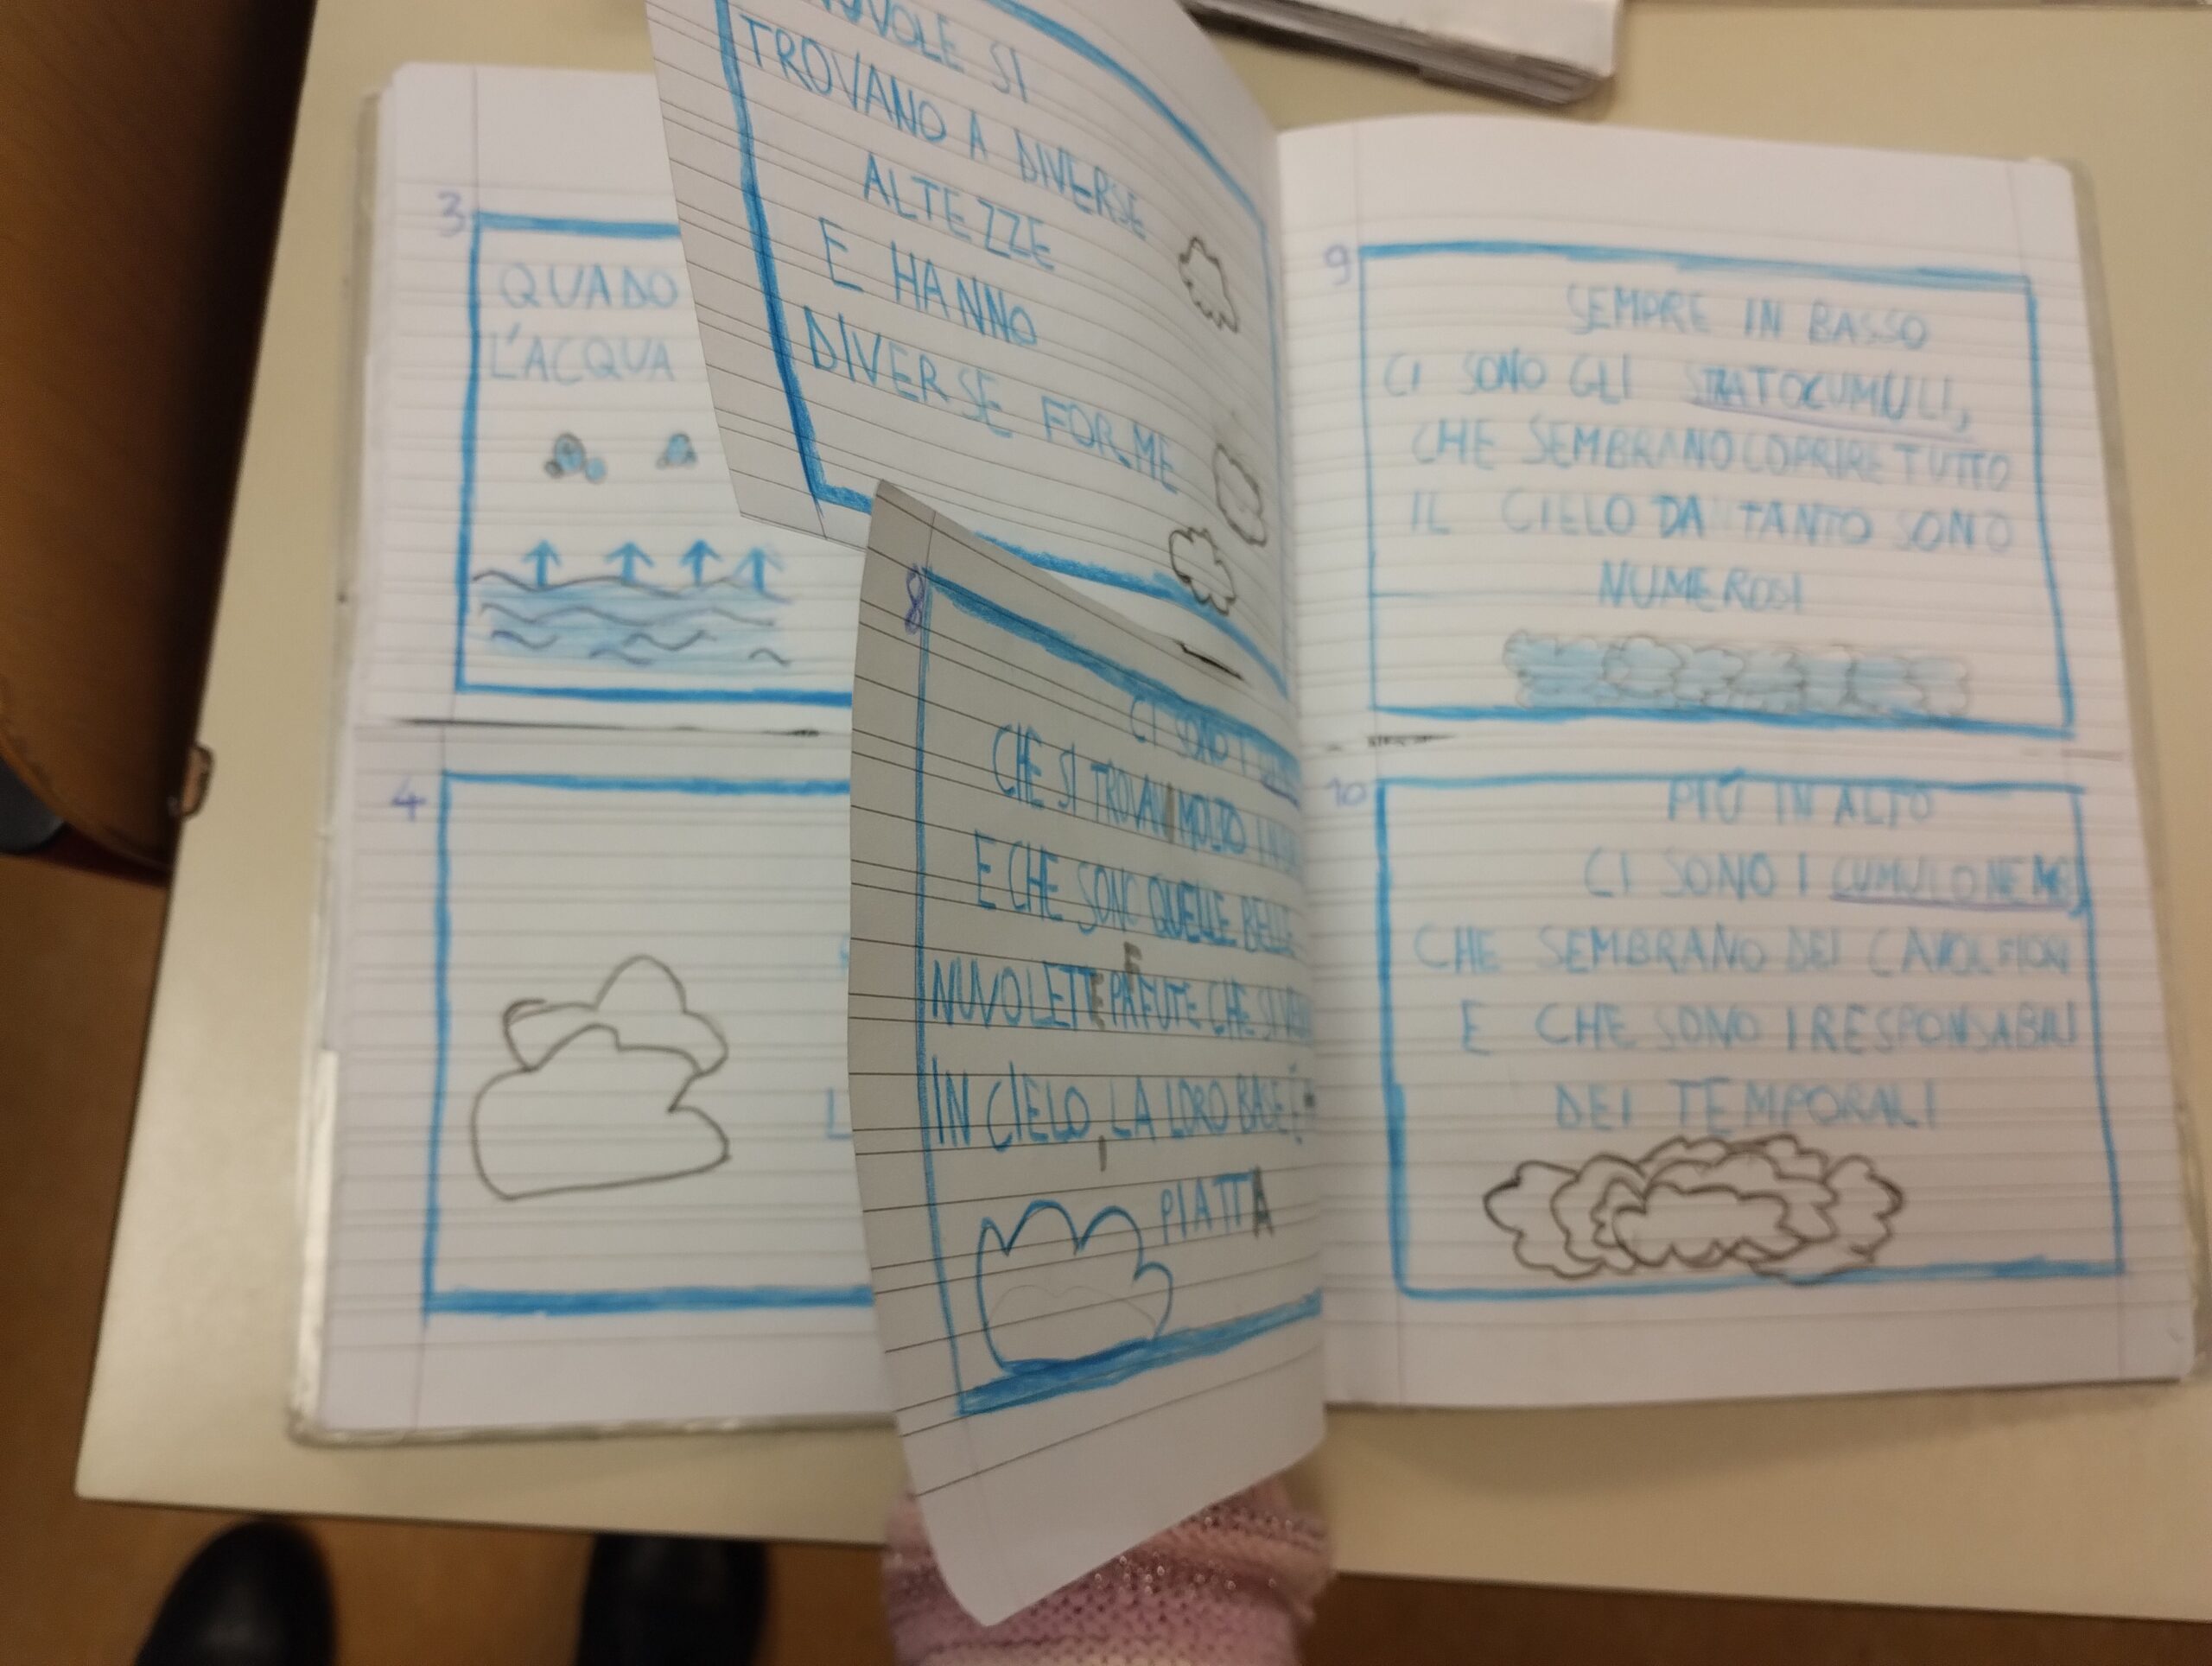 3
QUADO
L'ACQUA
4
NUVOLE SI
TROVANO A DIVERSE
ALTEZZE
E HANNO
DIVERSE FORME
8
CI SONO I
CHE SI TROVANO MOLTO
E CHE SONO QUELLE BELLE
NUVOLETTE CHE SI
IN CIELO, LA LORO BASE È
PIATTA
9
SEMPRE IN BASSO
CI SONO GLI STRATOCUMULI,
CHE SEMBRANO COPRIRE TUTTO
IL CIELO DA TANTO SONO
NUMEROSI
10
PIÚ IN ALTO
CI SONO I CUMULONEMBI,
CHE SEMBRANO DEI CAVOLFIORI
E CHE SONO I RESPONSABILI
DEI TEMPORALI